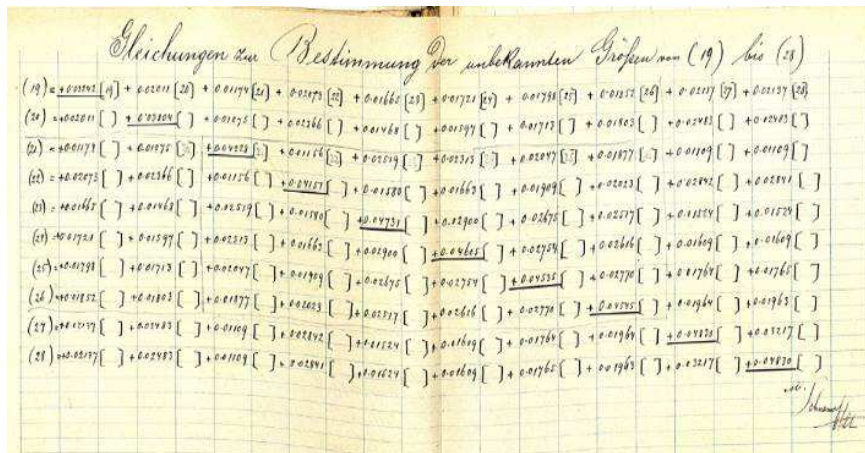 Gleichungen zur Bestimmung der unbekannten Größen von (19) bis (28)
(19) = +0.03242 [19] + 0.02011 [20] + 0.01174 [21] + 0.02073 [22] + 0.01665 [23] + 0.01721 [24] + 0.01798 [25] + 0.01852 [26] + 0.02137 [27] + 0.02137 [28]
(20) = +0.02011 [ ] + 0.03804 [ ] + 0.01275 [ ] + 0.02366 [ ] + 0.01468 [ ] + 0.01597 [ ] + 0.01713 [ ] + 0.01803 [ ] + 0.02483 [ ] + 0.02483 [ ]
(21) = +0.01174 [ ] + 0.01275 [ ] + 0.04228 [ ] + 0.01156 [ ] + 0.02519 [ ] + 0.02313 [ ] + 0.02047 [ ] + 0.01877 [ ] + 0.01109 [ ] + 0.01109 [ ]
(22) = +0.02073 [ ] + 0.02366 [ ] + 0.01156 [ ] + 0.04157 [ ] + 0.01580 [ ] + 0.01663 [ ] + 0.01909 [ ] + 0.02023 [ ] + 0.02842 [ ] + 0.02841 [ ]
(23) = +0.01665 [ ] + 0.01468 [ ] + 0.02519 [ ] + 0.01580 [ ] + 0.04731 [ ] + 0.02900 [ ] + 0.02675 [ ] + 0.02517 [ ] + 0.01524 [ ] + 0.01524 [ ]
(24) = +0.01721 [ ] + 0.01597 [ ] + 0.02313 [ ] + 0.01663 [ ] + 0.02900 [ ] + 0.04605 [ ] + 0.02754 [ ] + 0.02616 [ ] + 0.01609 [ ] + 0.01609 [ ]
(25) = +0.01798 [ ] + 0.01713 [ ] + 0.02047 [ ] + 0.01909 [ ] + 0.02675 [ ] + 0.02754 [ ] + 0.04535 [ ] + 0.02770 [ ] + 0.01764 [ ] + 0.01765 [ ]
(26) = +0.01852 [ ] + 0.01803 [ ] + 0.01877 [ ] + 0.02023 [ ] + 0.02517 [ ] + 0.02616 [ ] + 0.02770 [ ] + 0.04545 [ ] + 0.01964 [ ] + 0.01963 [ ]
(27) = +0.02137 [ ] + 0.02483 [ ] + 0.01109 [ ] + 0.02842 [ ] + 0.01524 [ ] + 0.01609 [ ] + 0.01764 [ ] + 0.01964 [ ] + 0.04830 [ ] + 0.03217 [ ]
(28) = +0.02137 [ ] + 0.02483 [ ] + 0.01109 [ ] + 0.02841 [ ] + 0.01524 [ ] + 0.01609 [ ] + 0.01765 [ ] + 0.01963 [ ] + 0.03217 [ ] + 0.04830 [ ]